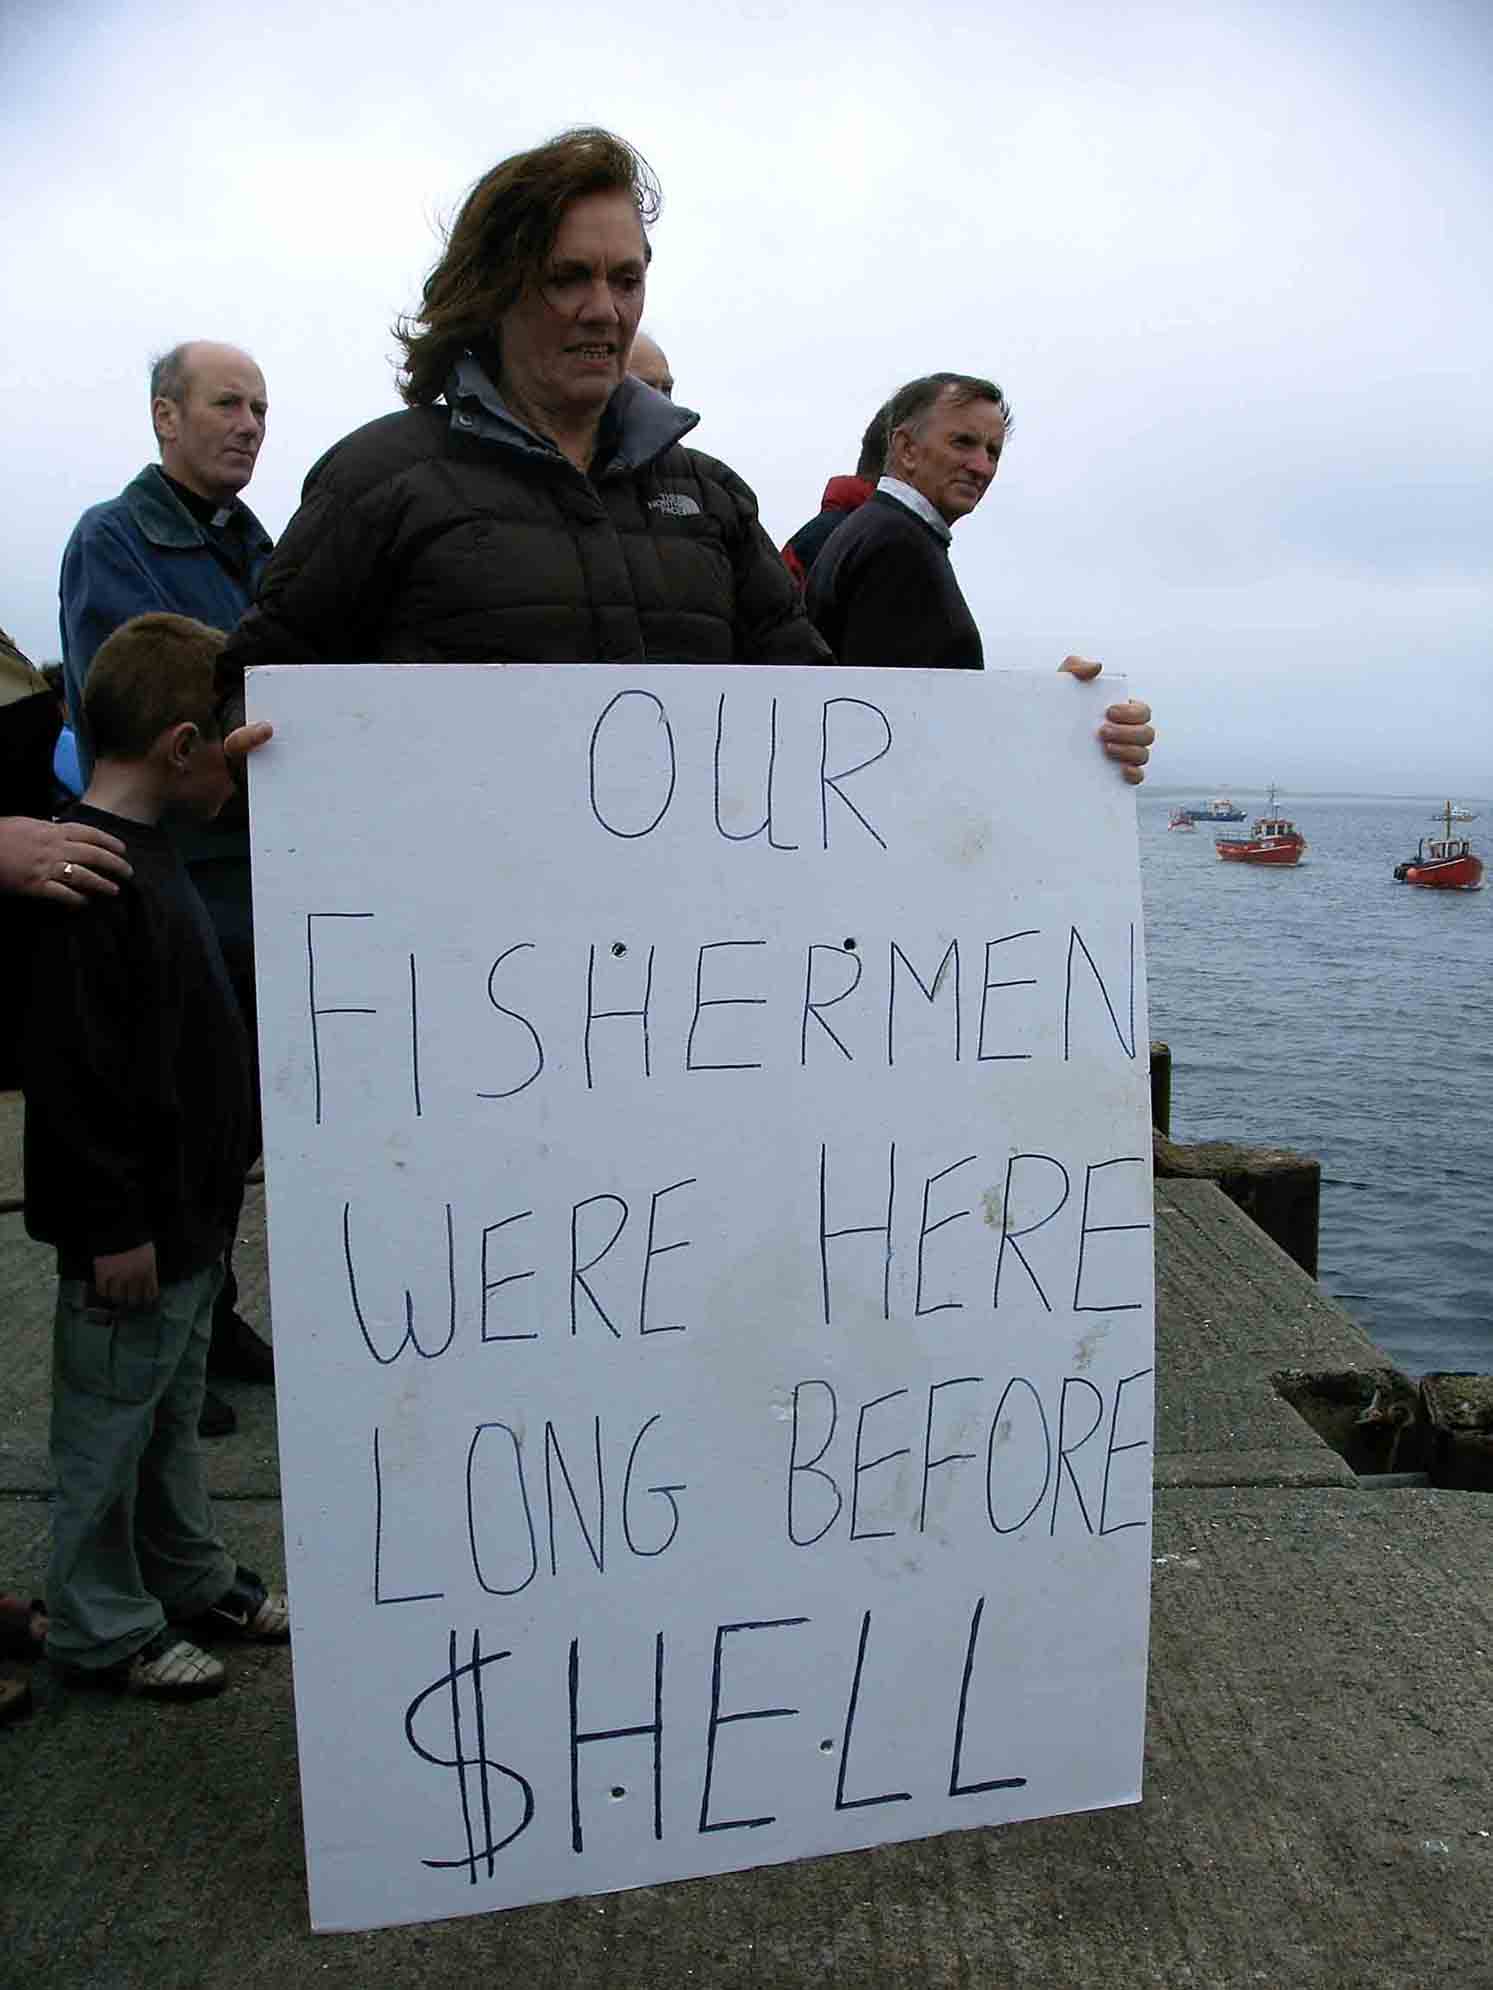 THE
NORTH
FACE
OUR
FISHERMEN
WERE HERE
LONG BEFORE
$HELL